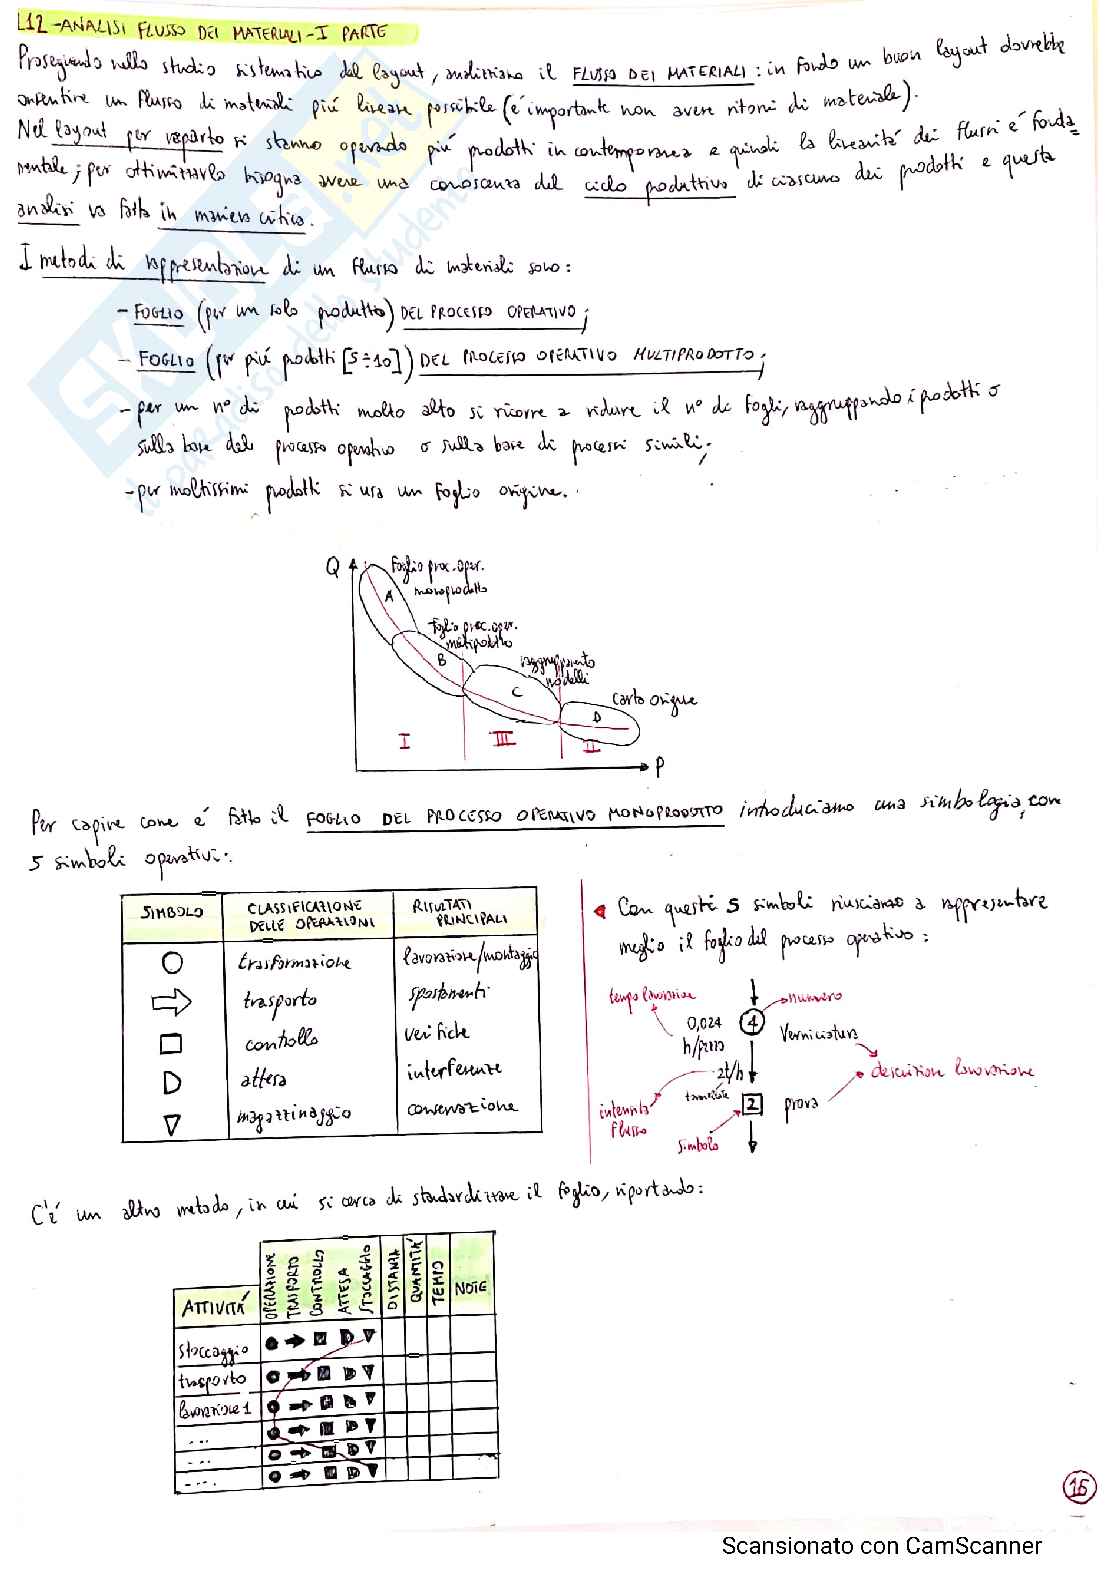 L12 - ANALISI FLUSSO DEI MATERIALI - I PARTE
Proseguendo nello studio sistematico del layout, analizziamo il FLUSSO DEI MATERIALI: in fondo un buon layout dovrebbe
consentire un flusso di materiali più lineare possibile (è importante non avere ritorni di materiale).
Nel layout per reparto si stanno operando più prodotti in contemporanea e quindi la linearità dei flussi è fonda
mentale; per ottimizzarlo bisogna avere una conoscenza del ciclo produttivo di ciascuno dei prodotti e questa
analisi va fatta in maniera critica.
I metodi di rappresentazione di un flusso di materiali sono:
- FOGLIO (per un solo prodotto) DEL PROCESSO OPERATIVO;
- FOGLIO (per più prodotti [5÷10]) DEL PROCESSO OPERATIVO MULTIPRODOTTO;
- per un n° di prodotti molto alto si ricorre a ridurre il n° di fogli, raggruppando i prodotti o
sulla base del processo operativo o sulla base di processi simili;
- per moltissimi prodotti si usa un foglio origine.
SKUOLA.net
il paradiso dello studente
Q
Foglio proc. oper.
monoprodotto
A
Foglio proc. oper.
multiprodotto
B
raggruppamento
modelli
C
carta origine
D
I III II
P
Per capire come è fatto il FOGLIO DEL PROCESSO OPERATIVO MONOPRODOTTO introduciamo una simbologia, con
5 simboli operativi:
SIMBOLO CLASSIFICAZIONE DELLE OPERAZIONI RISULTATI PRINCIPALI
trasformazione lavorazione/montaggio
trasporto spostamenti
controllo verifiche
attesa interferenze
magazzinaggio conservazione
Con questi 5 simboli riusciamo a rappresentare
meglio il foglio del processo operativo:
tempo lavorazione
numero
0,024
h/pezzo
4
Verniciatura
2t/h
tonnellate
descrizione lavorazione
intensità
flusso
2
prova
simbolo
C'è un altro metodo, in cui si cerca di standardizzare il foglio, riportando:
ATTIVITÀ OPERAZIONE TRASPORTO CONTROLLO ATTESA STOCCAGGIO DISTANZA QUANTITÀ TEMPO NOTE
stoccaggio
trasporto
lavorazione 1
...
...
....
15
Scansionato con CamScanner